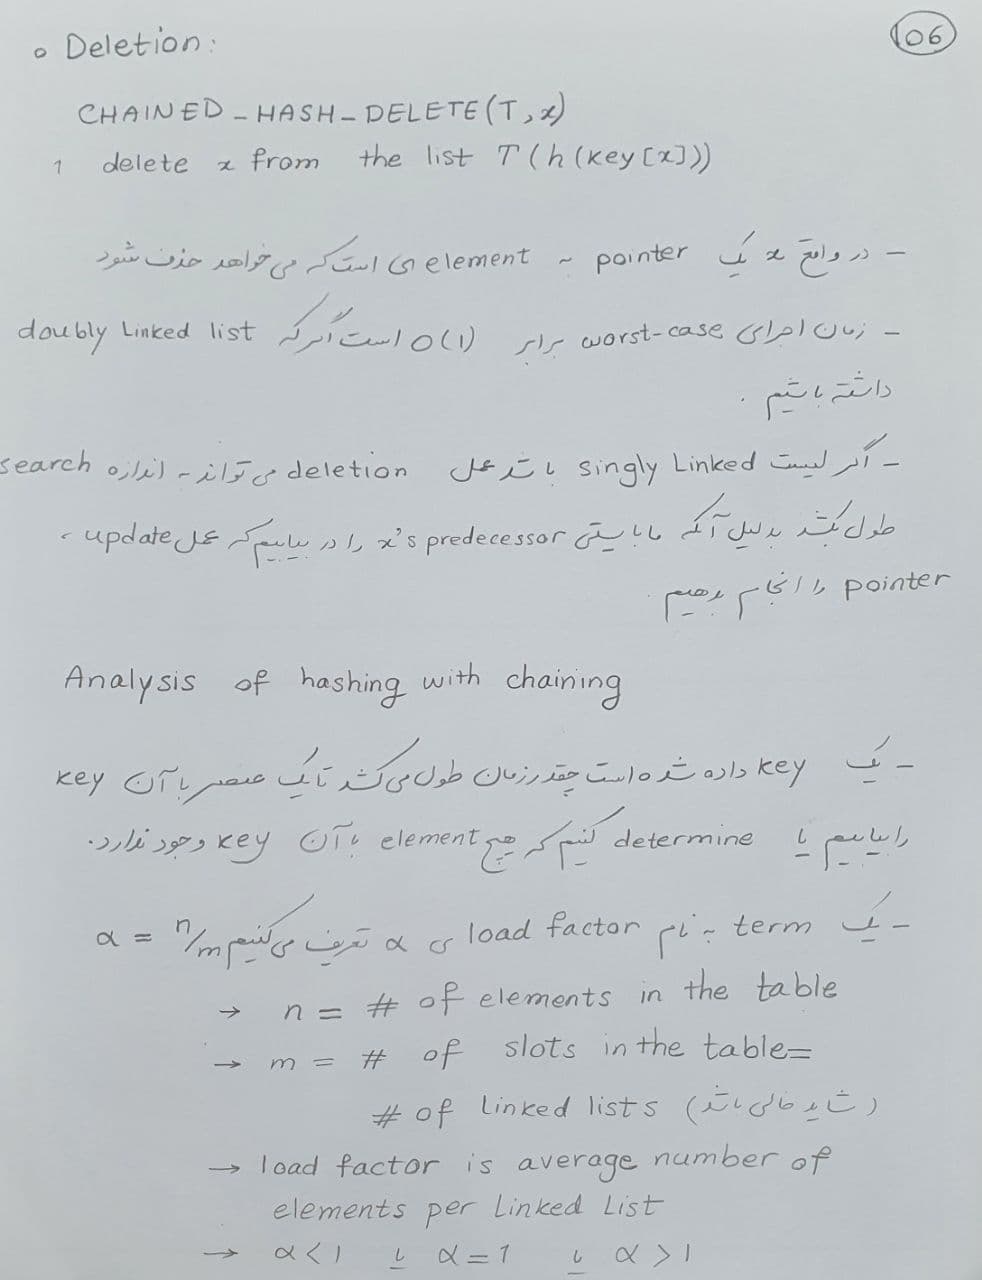 106
o Deletion:
CHAINED_HASH_DELETE(T,x)
1 delete x from the list T(h(key[x]))
- در واقع x یک pointer به element ی است که می خواهد حذف شود
- زمان اجرای worst-case برابر O(1) است اگر که doubly Linked list
داشته باشیم.
- اگر لیست singly Linked باشد عمل deletion می تواند به اندازه search
طول بکشد بدلیل آنکه ما بایستی x's predecessor را دریابیم که عمل update
pointer را انجام بدهیم.
Analysis of hashing with chaining
- یک key داده شده است چقدر زمان طول می کشد تا یک عنصر با آن key
را بیابیم یا determine کنیم که هیچ element با آن key وجود ندارد.
- یک term به نام load factor ی α تعریف می کنیم α = n/m
→ n = # of elements in the table
→ m = # of slots in the table=
# of Linked lists (شاید خالی باشد)
→ load factor is average number of
elements per Linked List
→ α<1 یا α=1 یا α>1